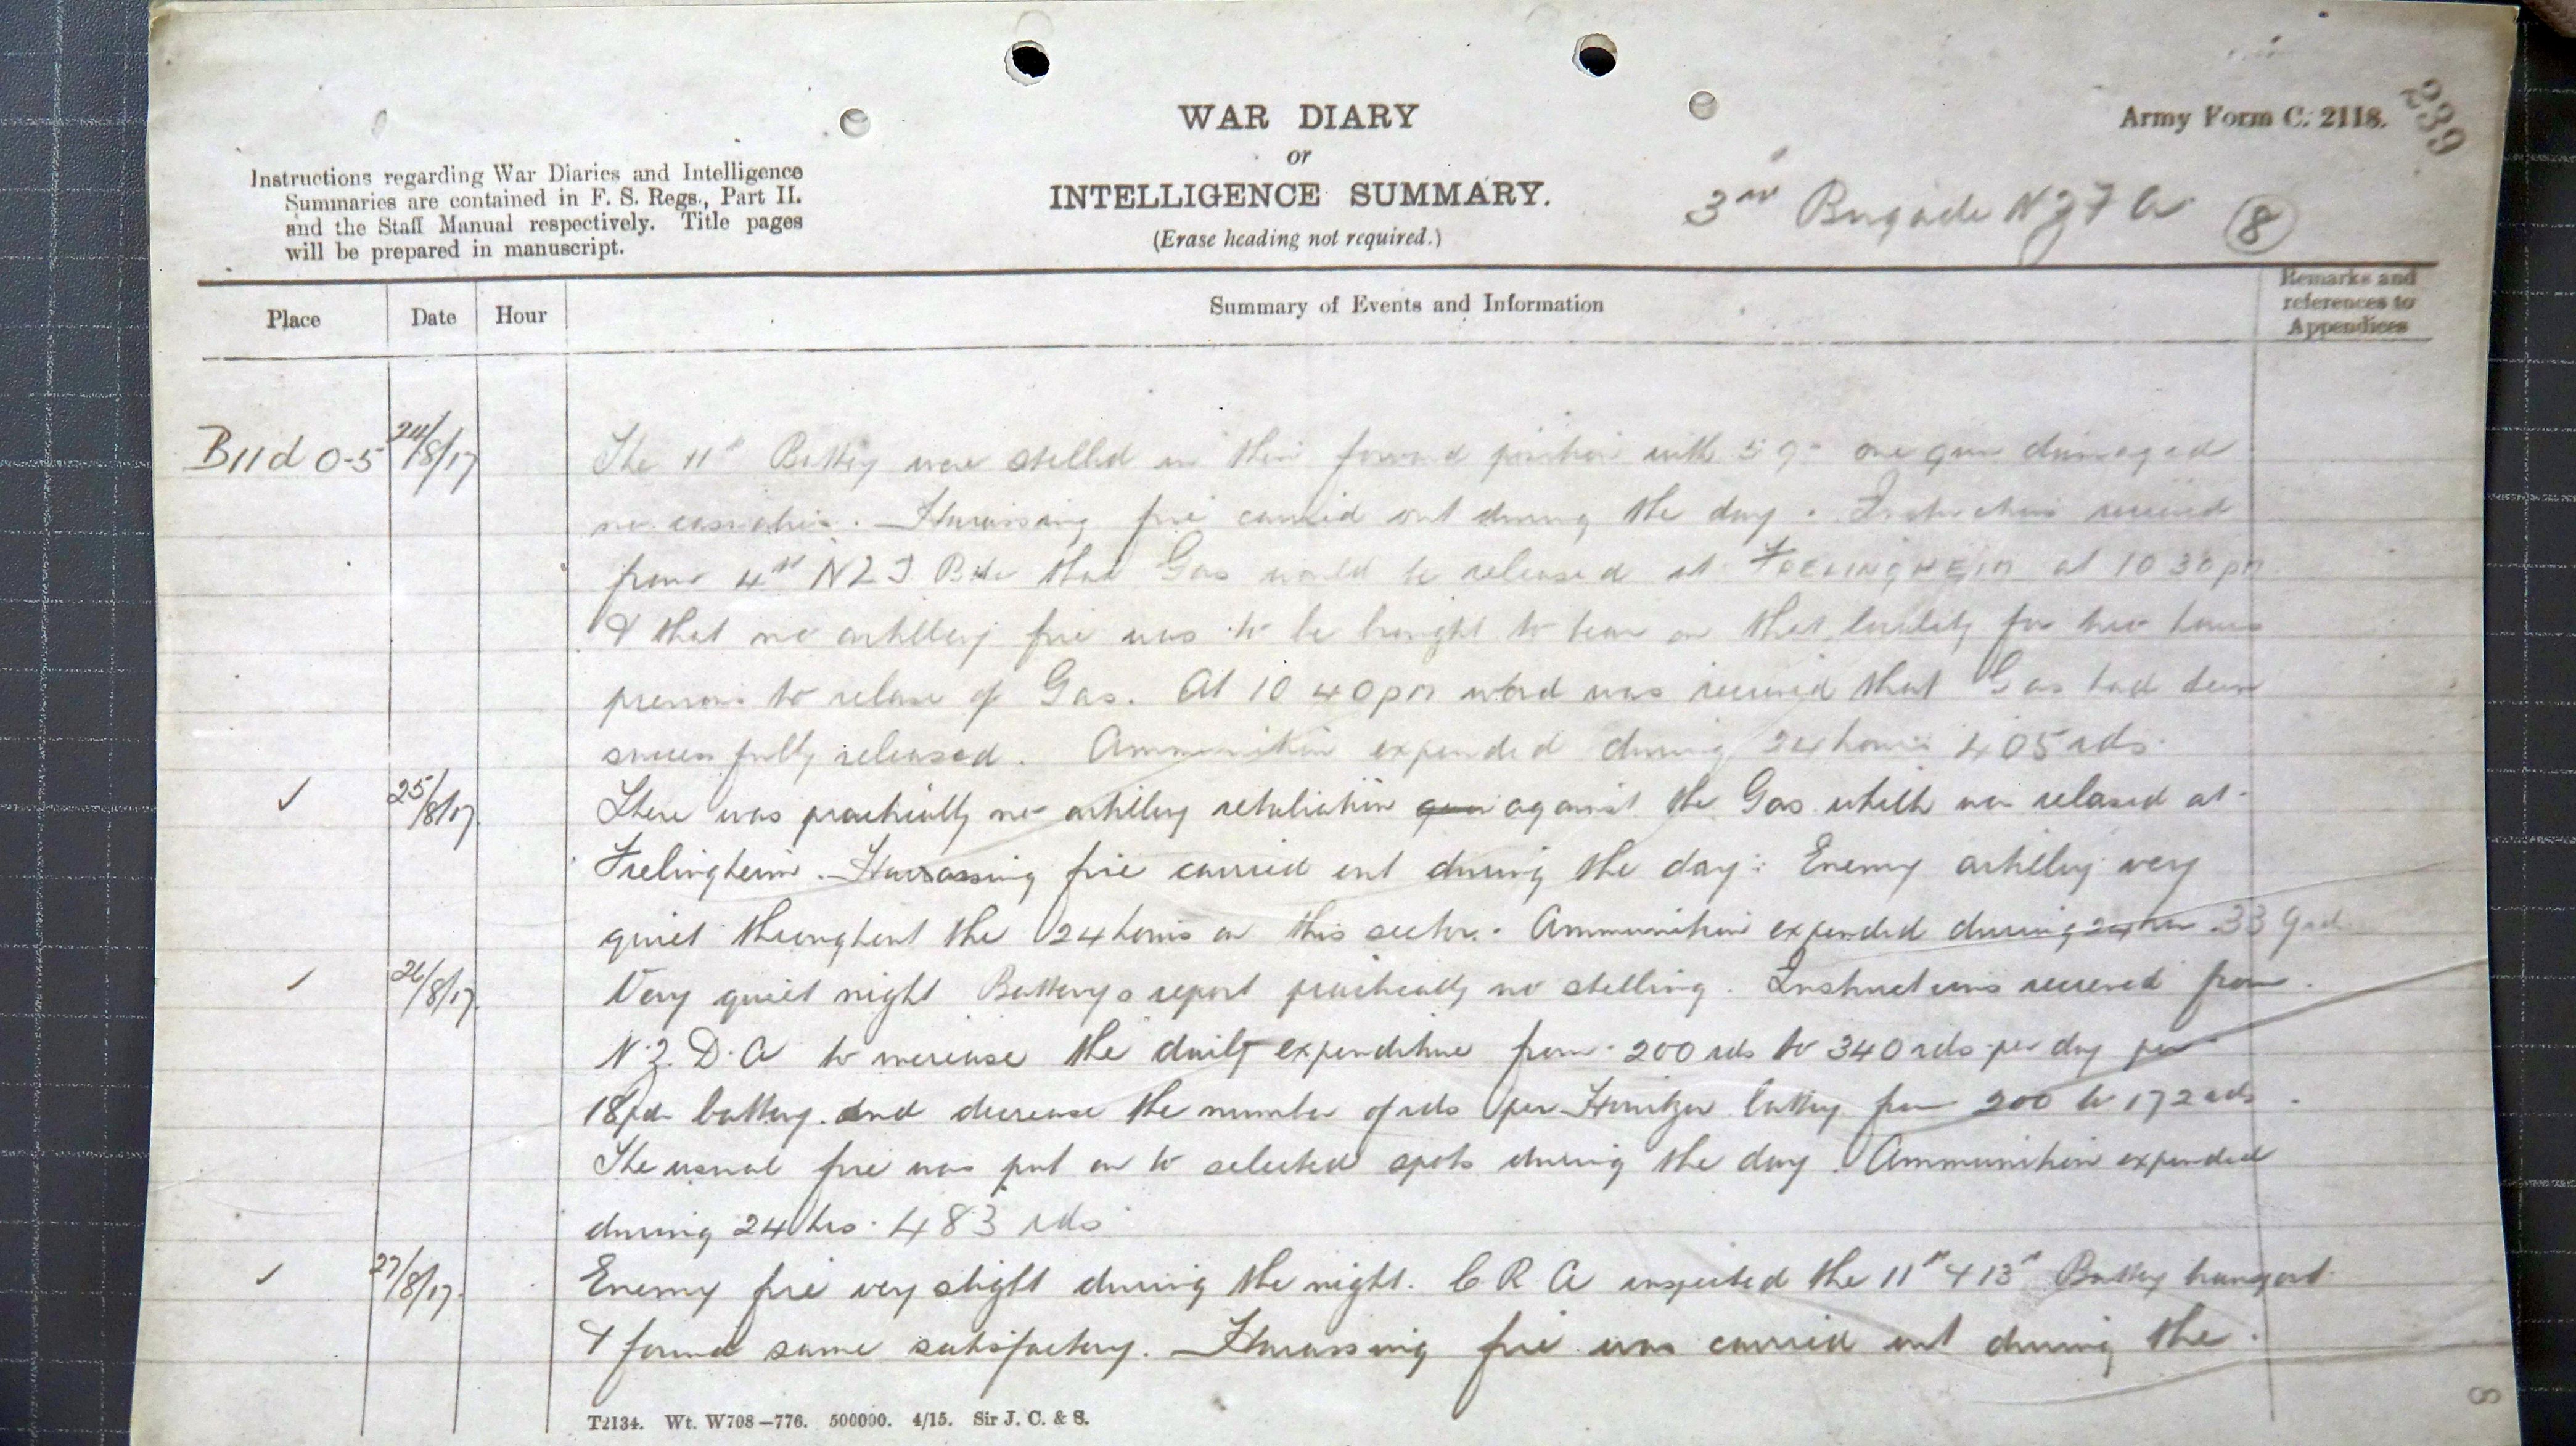 239
Army Form C. 2118.
WAR DIARY
or
INTELLIGENCE SUMMARY.
(Erase heading not required.)
Instructions regarding War Diaries and Intelligence
Summaries are contained in F. S. Regs., Part II.
and the Staff Manual respectively. Title pages
will be prepared in manuscript.
3rd Brigade NZFA 8
Place Date Hour Summary of Events and Information Remarks and
references to
Appendices
B11d 0-5 24/8/17 The 11th Battery were shelled in their forward position with 5 9s one gun damaged
no casualties. Harassing fire carried out during the day. Instructions received
from 4th NZI Bde that Gas would be released at FRELINGHEIM at 10 30pm
& that no artillery fire was to be brought to bear on that locality for two hours
previous to release of Gas. At 10 40pm word was received that Gas had been
successfully released. Ammunition expended during 24 hours 405 rds.
✓ 25/8/17 There was practically no artillery retaliation against the Gas which was released at
Frelingheim. Harrassing fire carried out during the day: Enemy artillery very
quiet throughout the 24 hours on this sector. Ammunition expended during 24 hrs 339 rds
✓ 26/8/17 Very quiet night Batterys report practically no shelling. Instructions received from
N.Z.D.A to increase the daily expenditure from 200 rds to 340 rds per day per
18pdr battery. and decrease the number of rds per Howitzer battery from 200 to 172 rds.
The usual fire was put on to selected spots during the day. Ammunition expended
during 24 hrs. 483 rds
✓ 27/8/17. Enemy fire very slight during the night. C R A inspected the 11th & 13th Battery transport
& found same satisfactory. Harassing fire was carried out during the
T2134. Wt. W708—776. 500000. 4/15. Sir J. C. & S.
8